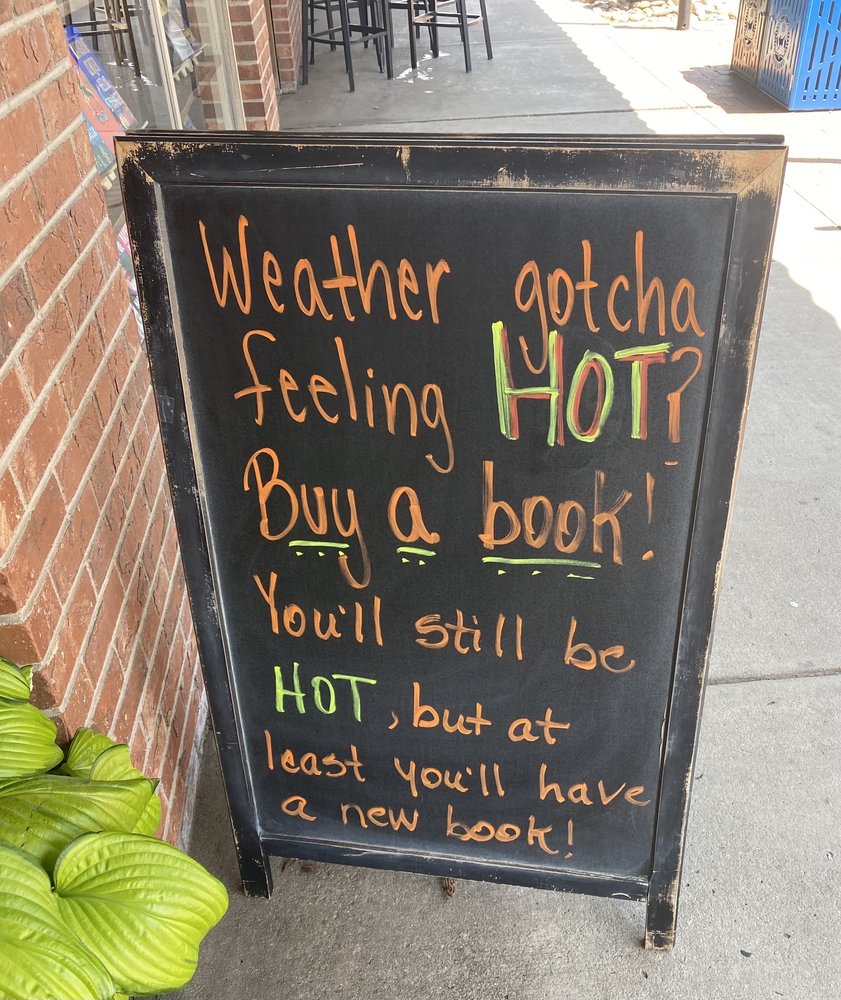 Weather gotcha
feeling HOT?
Buy a book!
You'll still be
HOT, but at
least you'll have
a new book!